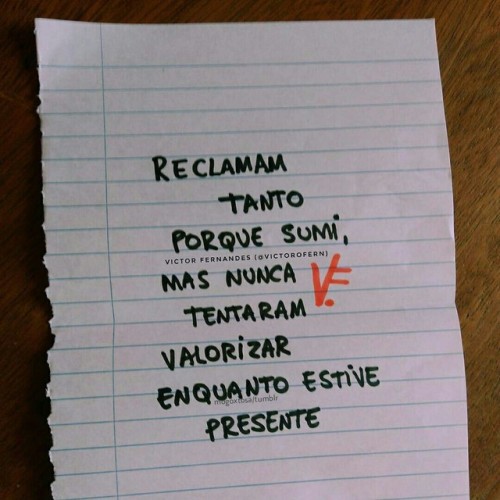 RECLAMAM
TANTO
PORQUE SUMI,
VICTOR FERNANDES (@VICTOROFERN)
MAS NUNCA
VF.
TENTARAM
VALORIZAR
ENQUANTO ESTIVE
PRESENTE